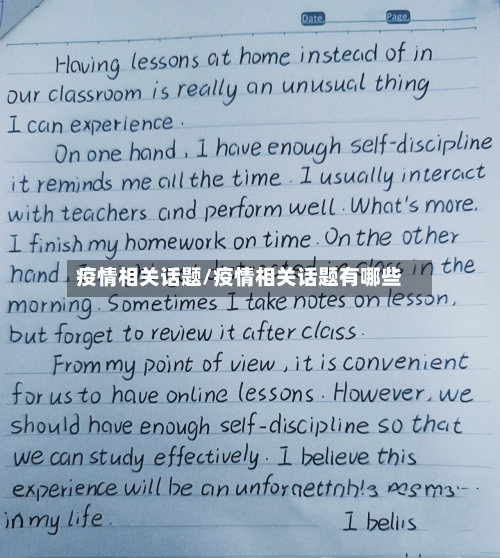 Date
Page
Having lessons at home instead of in
our classroom is really an unusual thing
I can experience.
On one hand, I have enough self-discipline
it reminds me all the time. I usually interact
with teachers and perform well. What's more,
I finish my homework on time. On the other
hand, in the
疫情相关话题/疫情相关话题有哪些
morning. Sometimes I take notes on lesson,
but forget to review it after class.
From my point of view, it is convenient
for us to have online lessons. However, we
should have enough self-discipline so that
we can study effectively. I believe this
experience will be an
in my life. I